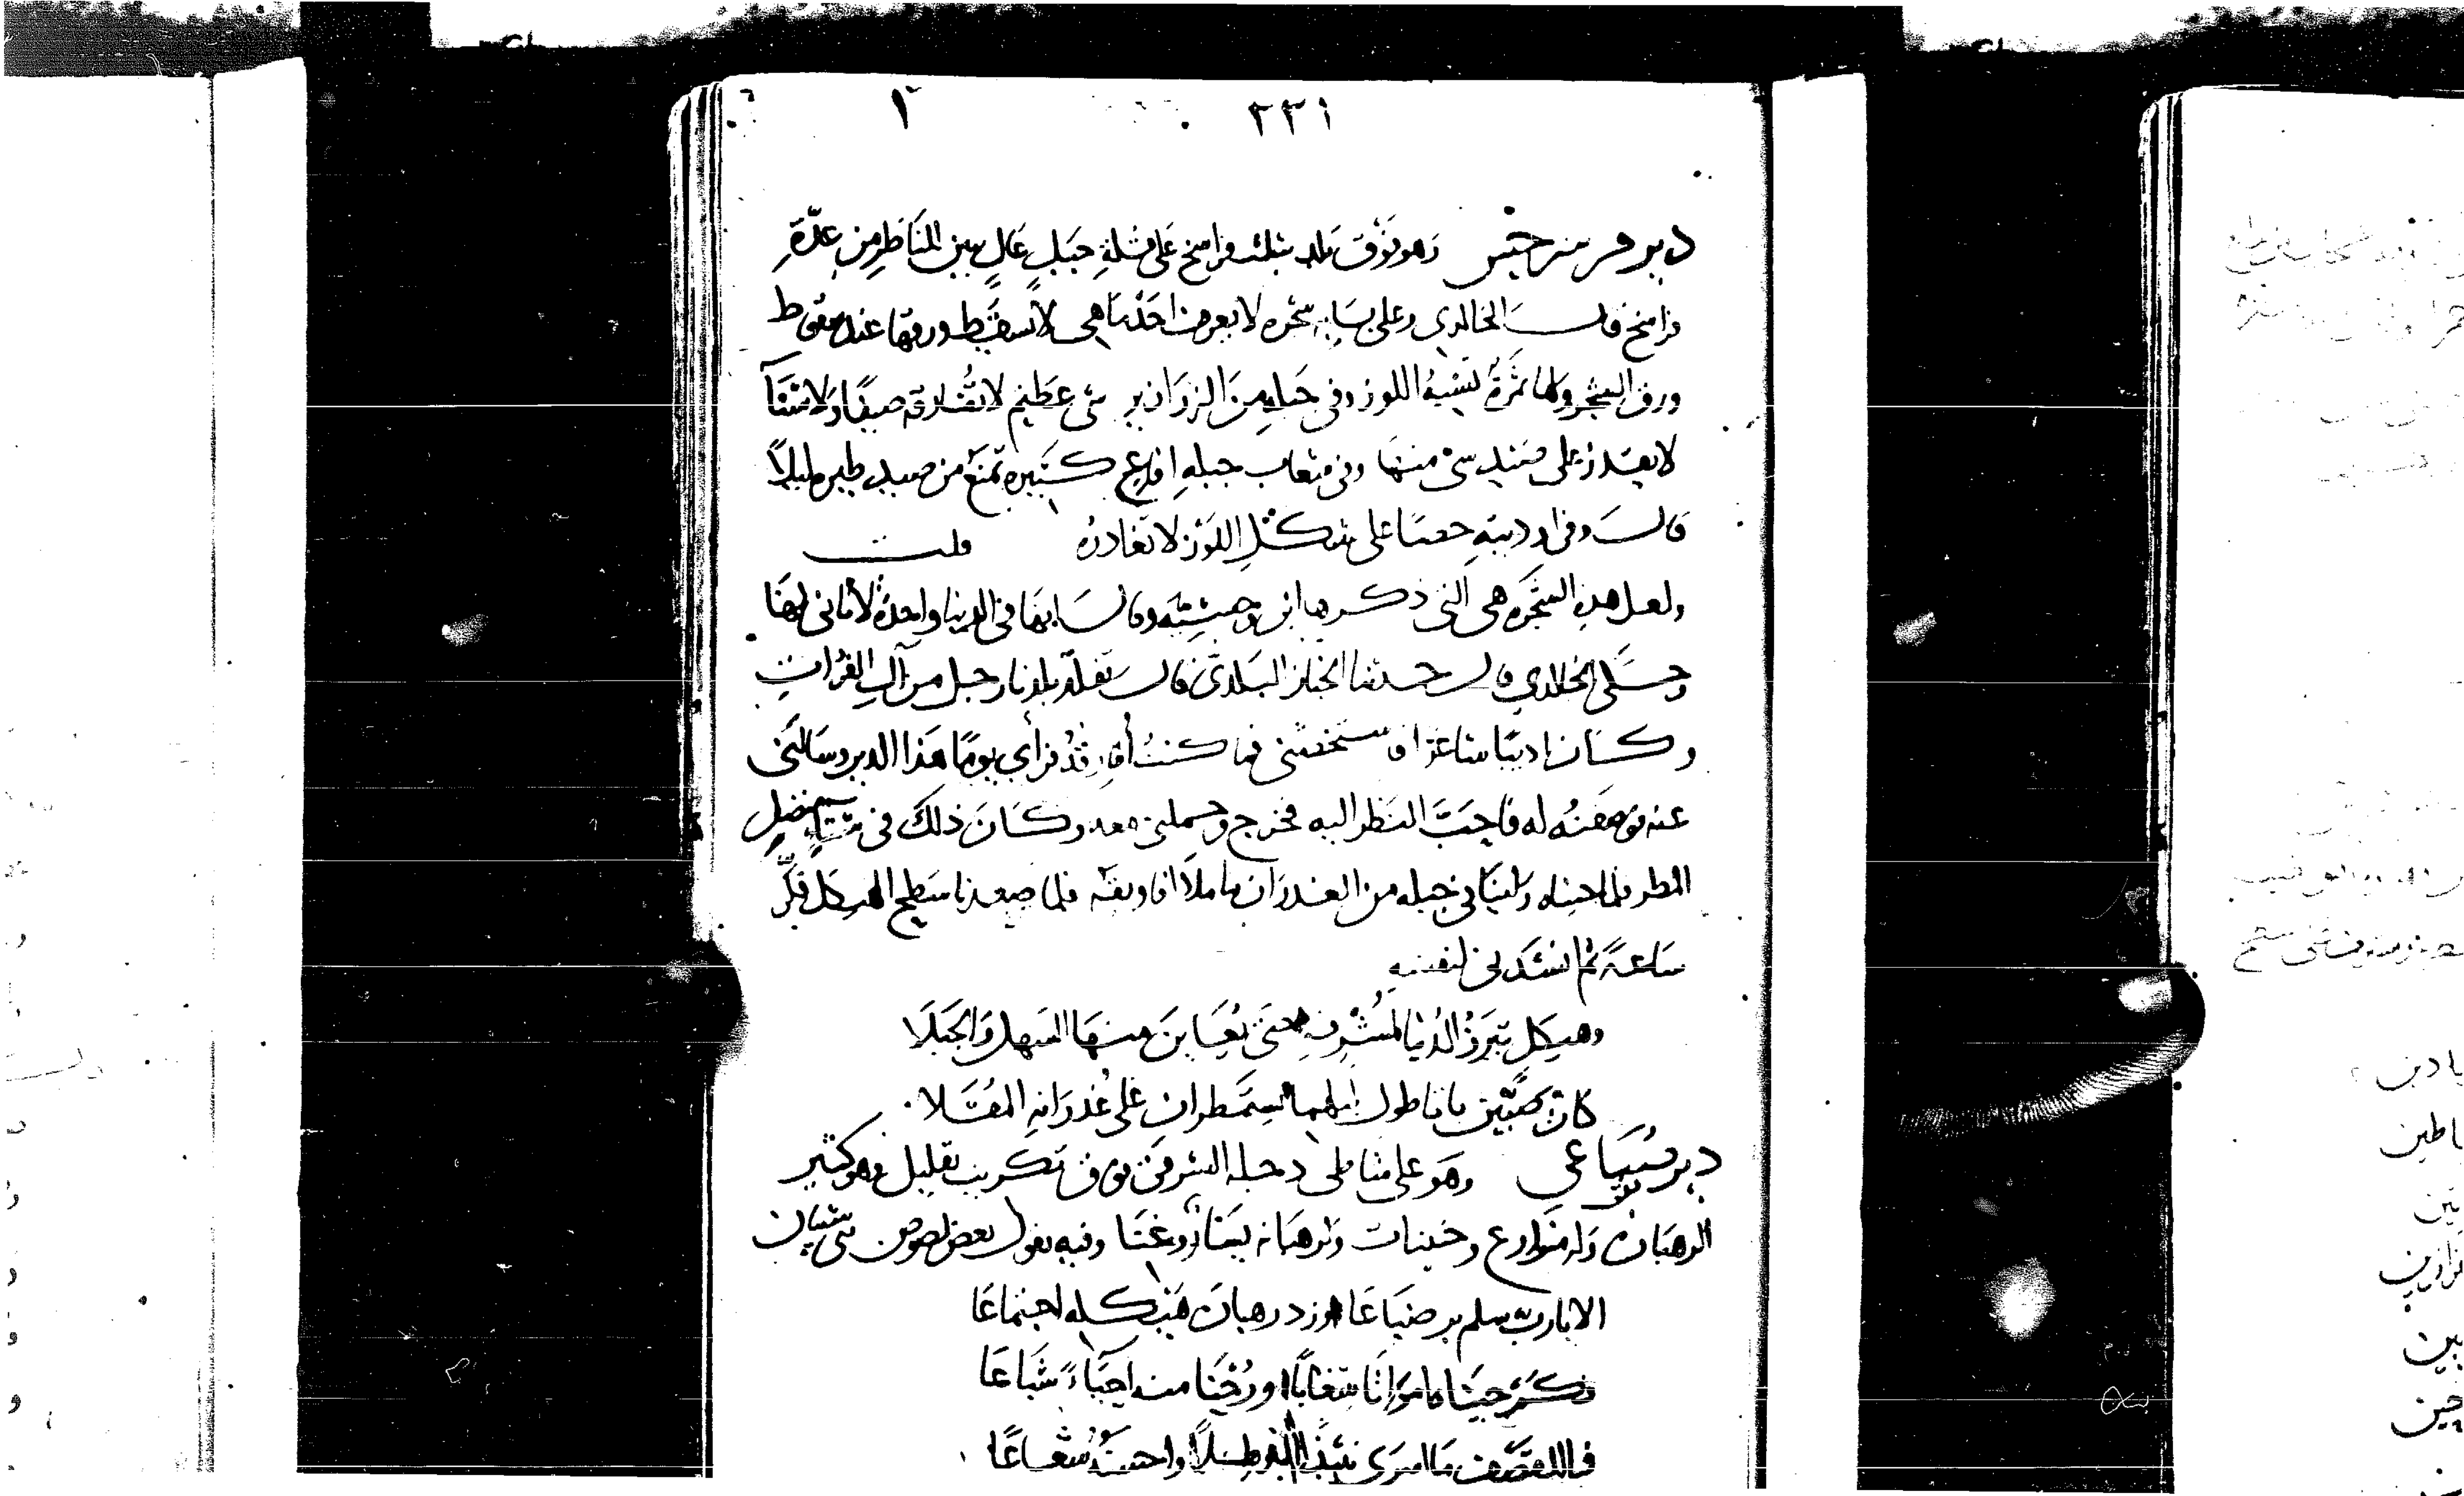 ٣٣١
دير مر مرجيس وهو فوق بلد بثلث فراسخ على قلة جبل عال يبين للناظر من عدة
فراسخ قال الخالدي وعلى بابه شجره لا يعرف احد ما هي لا يسقط ورقها عند سقوط
ورق الشجر ولها ثمرة تشبه اللوز وفي جبله من الزرازير شي عظيم لا تفارقه صيفا ولا شتآ
لا يقدر على صيد شي منها وفي شعاب جبله افاع كثيره تمنع من صيد طيره ليلا
قال وفي اوديته حصا على شكل اللوز لا تغادره قلت
ولعل هذه الشجره هي التي ذكرها ابن وحشية وقال انها في الدنيا واحدة لا ثاني لها
وحكى الخالدي قال حدثنا الخباز البلدي قال تقلد بلدنا رجل من آل الفرات
وكان اديبا شاعرا فاستخصني فما كنت أفارقه فرأى يوما هذا الدير وسالني
عنه فوصفته له فاحب النظر اليه فخرج وحملني معه وكان ذلك في شتاء خضل
المطر فلما جيناه راينا في جبله من الغدران ما ملأ اوديته فلما صعدنا سطح الهيكل فكر
ساعة ثم انشدني لنفسه
وهيكل تبرز الدنيا لمشرفه حتى يعاين منها السهل والجبلا
كان بصبين باتا طول ليلهما يستمطران على غدرانه المقلا
دير صباعى وهو على شاطى دجله الشرقي فوق تكريت بقليل وهو كثير
الرهبان وله مزارع وجنينات ولرهبانه يسار وغنا وفيه يقول بعض لصوص بني شيبان
الا يا رب سلم دير صباعا وزد رهبان هيكله اجتماعا
فكم جيناه امواتا سغابا ورحنا منه احياء شباعا